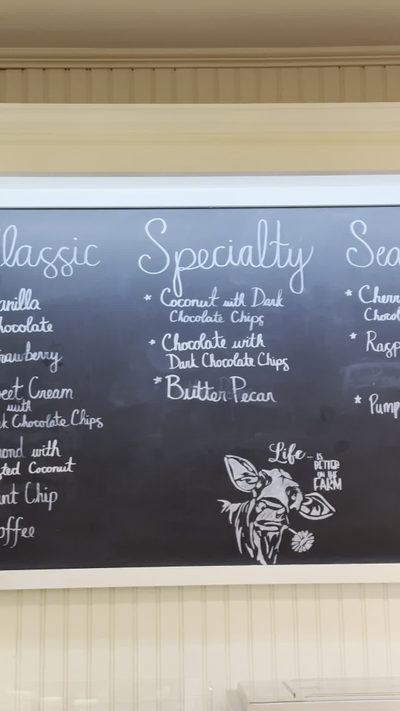 Classic
anilla
hocolate
rawberry
eet Cream
with
k Chocolate Chips
ond with
ted Coconut
nt Chip
offee
Specialty
* Coconut with Dark
Chocolate Chips
* Chocolate with
Dark Chocolate Chips
* Butter Pecan
Life...
IS
BETTER
ON THE
FARM
Sea
* Cherr
Chocol
* Rasp
* Pump